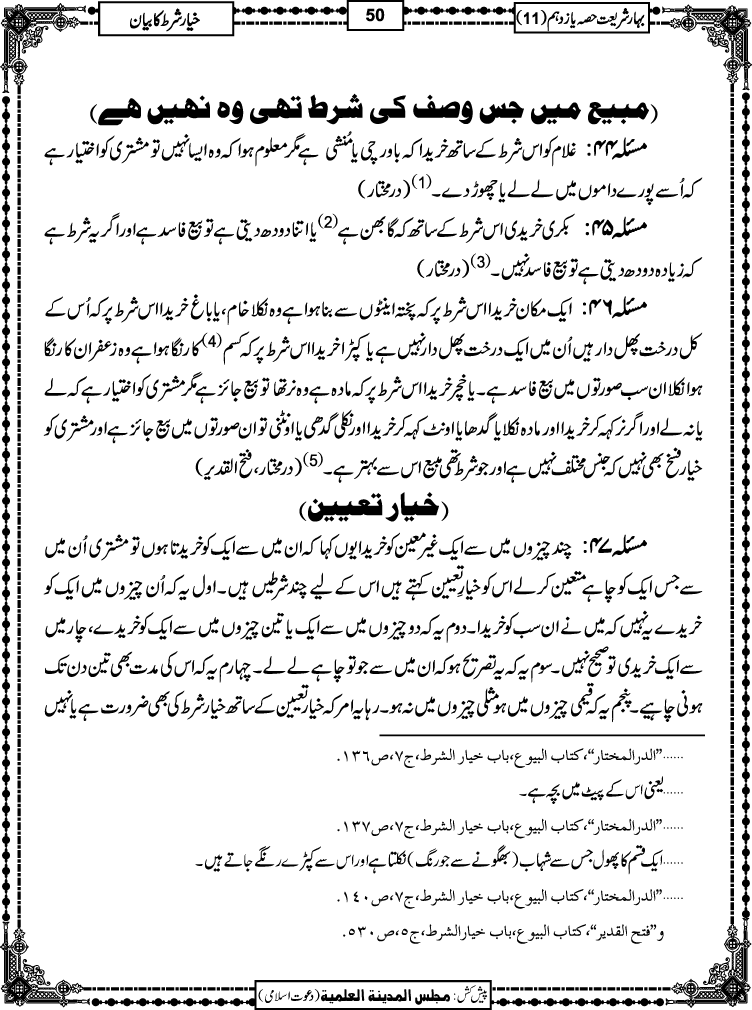 بہار شریعت حصہ یازدہم (11)
50
خیار شرط کا بیان
(مبیع میں جس وصف کی شرط تھی وہ نھیں ھے)
مسئلہ ۴۴: غلام کو اس شرط کے ساتھ خریدا کہ باورچی یا مُنشی ہے مگر معلوم ہوا کہ وہ ایسا نہیں تو مشتری کو اختیار ہے
کہ اُسے پورے داموں میں لے لے یا چھوڑ دے۔(1) (درمختار)
مسئلہ ۴۵: بکری خریدی اس شرط کے ساتھ کہ گابھن ہے(2) یا اتنا دودھ دیتی ہے تو بیع فاسد ہے اور اگر یہ شرط ہے
کہ زیادہ دودھ دیتی ہے تو بیع فاسد نہیں۔(3) (درمختار)
مسئلہ ۴۶: ایک مکان خریدا اس شرط پر کہ پختہ اینٹوں سے بنا ہوا ہے وہ نکلا خام، یا باغ خریدا اس شرط پر کہ اُس کے
کل درخت پھل دار ہیں اُن میں ایک درخت پھل دار نہیں ہے یا کپڑا خریدا اس شرط پر کہ کسم(4) کا رنگا ہوا ہے وہ زعفران کا رنگا
ہوا نکلا ان سب صورتوں میں بیع فاسد ہے۔ یا خچر خریدا اس شرط پر کہ مادہ ہے وہ نر تھا تو بیع جائز ہے مگر مشتری کو اختیار ہے کہ لے
یا نہ لے اور اگر نر کہہ کر خریدا اور مادہ نکلا یا گدھا یا اونٹ کہہ کر خریدا اور نکلی گدھی یا اونٹنی تو ان صورتوں میں بیع جائز ہے اور مشتری کو
خیار فسخ بھی نہیں کہ جنس مختلف نہیں ہے اور جو شرط تھی مبیع اس سے بہتر ہے۔(5) (درمختار، فتح القدیر)
(خیار تعیین)
مسئلہ ۴۷: چند چیزوں میں سے ایک غیر معین کو خریدا یوں کہا کہ ان میں سے ایک کو خریدتا ہوں تو مشتری اُن میں
سے جس ایک کو چاہے متعین کر لے اس کو خیار تعیین کہتے ہیں اس کے لیے چند شرطیں ہیں۔ اول یہ کہ اُن چیزوں میں ایک کو
خریدے یہ نہیں کہ میں نے ان سب کو خریدا۔ دوم یہ کہ دو چیزوں میں سے ایک یا تین چیزوں میں سے ایک کو خریدے، چار میں
سے ایک خریدی تو صحیح نہیں۔ سوم یہ کہ یہ تصریح ہو کہ ان میں سے جو تو چاہے لے لے۔ چہارم یہ کہ اس کی مدت بھی تین دن تک
ہونی چاہیے۔ پنجم یہ کہ قیمی چیزوں میں ہو مثلی چیزوں میں نہ ہو۔ رہا یہ امر کہ خیار تعیین کے ساتھ خیار شرط کی بھی ضرورت ہے یا نہیں
......”الدرالمختار“، کتاب البیوع، باب خیار الشرط، ج۷، ص۱۳۶.
......یعنی اس کے پیٹ میں بچہ ہے۔
......”الدرالمختار“، کتاب البیوع، باب خیار الشرط، ج۷، ص۱۳۷.
......ایک قسم کا پھول جس سے شہاب (بھگونے سے جو رنگ) نکلتا ہے اور اس سے کپڑے رنگے جاتے ہیں۔
......”الدرالمختار“، کتاب البیوع، باب خیار الشرط، ج۷، ص۱۴۰.
و”فتح القدیر“، کتاب البیوع، باب خیارالشرط، ج۵، ص۵۳۰.
پیش کش: مجلس المدینة العلمیة (دعوت اسلامی)